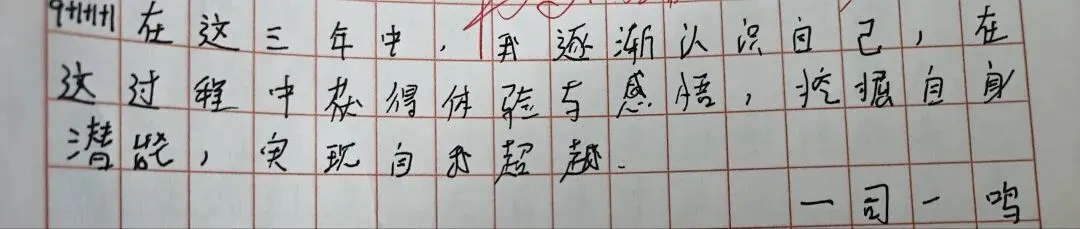 9+1+1+1 在这三年中，我逐渐认识自己，在
这过程中获得体验与感悟，挖掘自身
潜能，实现自我超越.
一司一鸣